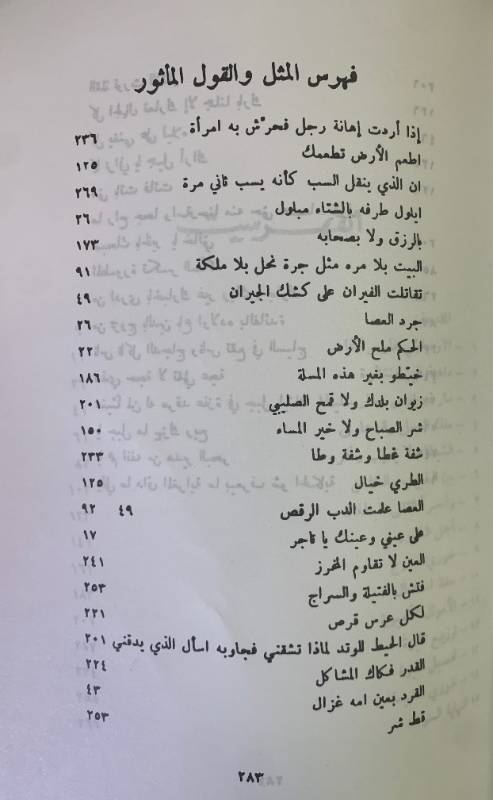 فهرس المثل والقول المأثور
إذا أردت إهانة رجل فحرّش به امرأة ٢٣٦
اطعم الأرض تطعمك ١٢٥
ان الذي ينقل السب كأنه يسب ثاني مرة ٢٦٩
ايلول طرفه بالشتاء مبلول ٢٦
بالرزق ولا بصحابه ١٧٣
البيت بلا مره مثل جرة نحل بلا ملكة ٩١
تقاتلت الفيران على كشك الجيران ٤٩
جرد العصا ٢٦
الحكم ملح الأرض ٢٢
خيّطو بغير هذه المسلة ١٨٦
زيوان بلدك ولا قمح الصليبي ٢٠١
شر الصباح ولا خير المساء ١٥٠
شفة غطا وشفة وطا ٢٣٣
الطري خيال ١٢٥
العصا علمت الدب الرقص ٤٩ ٩٢
على عيني وعينك يا تاجر ١٧
العين لا تقاوم المخرز ٢٤١
فتش بالفتيلة والسراج ٢٥٣
لكل عرس قرص ٢٢١
قال الحيط للوتد لماذا تشقني فجاوبه اسأل الذي يدقني ٢٠١
القدر فكاك المشاكل ٢٢٤
القرد بعين امه غزال ٤٣
قط شر ٢٥٣
٢٨٣